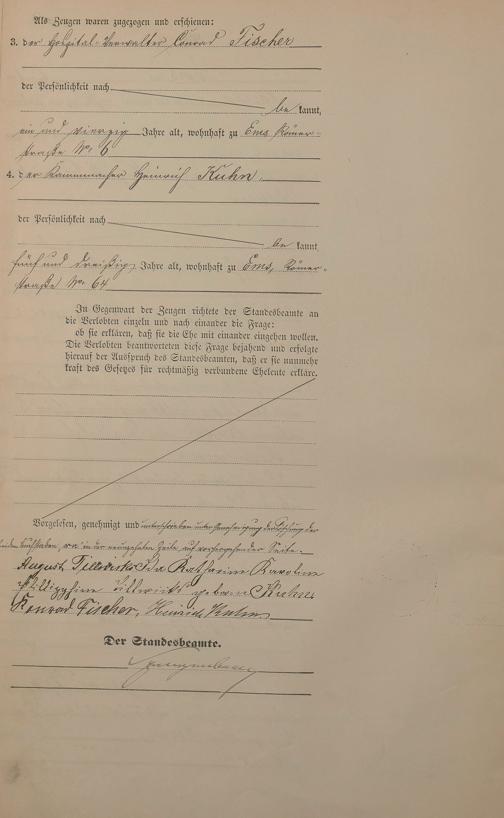 Als Zeugen waren zugezogen und erschienen:
3. der Hospital-Verwalter Conrad Fischer
der Persönlichkeit nach
be kannt,
ein und vierzig Jahre alt, wohnhaft zu Ems Römer-
straße No. 6
4. der Kammmacher Heinrich Kuhn,
der Persönlichkeit nach
be kannt
fünf und dreißig Jahre alt, wohnhaft zu Ems, Römer-
straße No. 64
In Gegenwart der Zeugen richtete der Standesbeamte an
die Verlobten einzeln und nach einander die Frage:
ob sie erklären, daß sie die Ehe mit einander eingehen wollen.
Die Verlobten beantworteten diese Frage bejahend und erfolgte
hierauf der Ausspruch des Standesbeamten, daß er sie nunmehr
kraft des Gesetzes für rechtmäßig verbundene Eheleute erkläre.
Vorgelesen, genehmigt und unterschrieben unter Genehmigung der Löschung der
Buchstaben in der neunzehnten Zeile auf vorhergehender Seite.
August Ida Katharina Karoline
geborene
Konrad Fischer, Heinrich Kuhn
Der Standesbeamte.